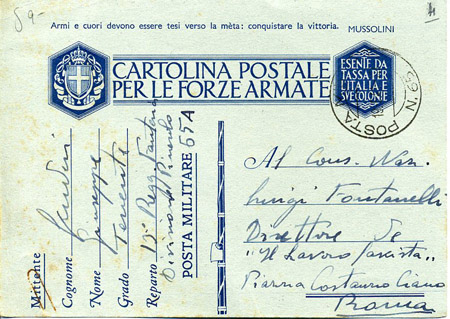 59-
Armi e cuori devono essere tesi verso la mèta: conquistare la vittoria. MUSSOLINI
CARTOLINA POSTALE
PER LE FORZE ARMATE
ESENTE DA
TASSA PER
L'ITALIA E
SVE COLONIE
POSTA N. 65
Mittente
Cognome
Nome Giuseppe
Grado Tenente
Reparto 13° Regg. Fanteria
Divisione Pinerolo
POSTA MILITARE 65 A
Al Cons. Naz.
Luigi Fontanelli
Direttore de
"Il Lavoro fascista"
Piazza Costanzo Ciano
Roma